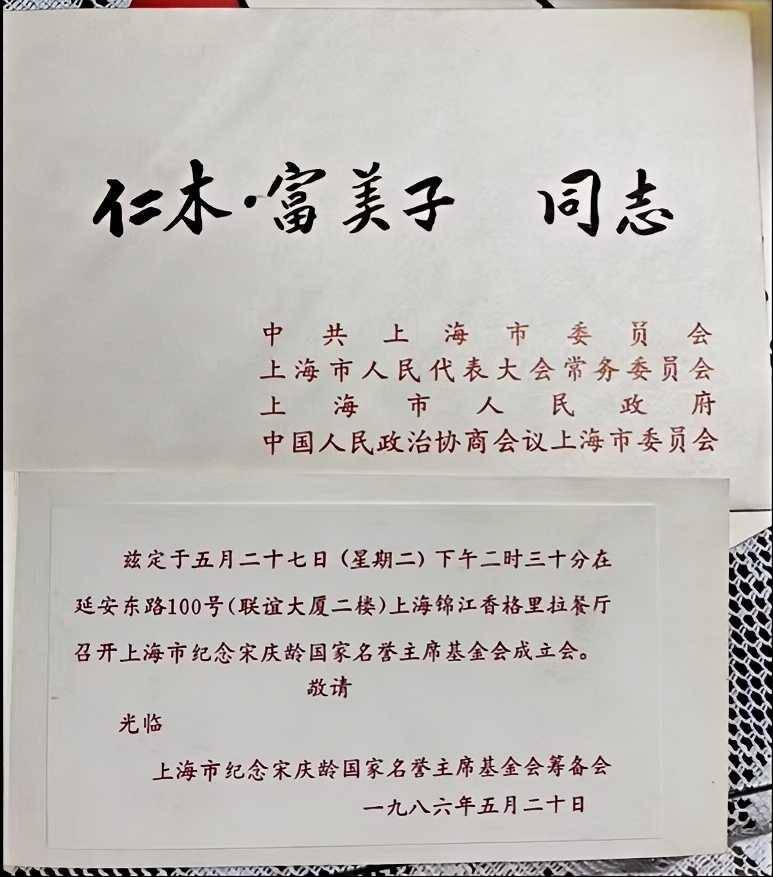 仁木·富美子 同志
中共上海市委员会
上海市人民代表大会常务委员会
上海市人民政府
中国人民政治协商会议上海市委员会
兹定于五月二十七日（星期二）下午二时三十分在
延安东路100号（联谊大厦二楼）上海锦江香格里拉餐厅
召开上海市纪念宋庆龄国家名誉主席基金会成立会。
敬请
光临
上海市纪念宋庆龄国家名誉主席基金会筹备会
一九八六年五月二十日